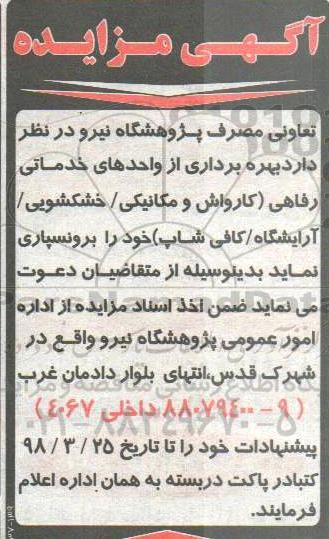 آگهی مزایده
تعاونی مصرف پژوهشگاه نیرو در نظر
دارد بهره برداری از واحدهای خدماتی
رفاهی (کارواش و مکانیکی/ خشکشویی/
آرایشگاه/کافی شاپ)خود را برونسپاری
نماید بدینوسیله از متقاضیان دعوت
می نماید ضمن اخذ اسناد مزایده از اداره
امور عمومی پژوهشگاه نیرو واقع در
شهرک قدس،انتهای بلوار دادمان غرب
( ۹ - ۸۸۰۷۹۴۰۰ داخلی ۴۰۶۷ )
پیشنهادات خود را تا تاریخ ۹۸/۳/۲۵
کتبادر پاکت دربسته به همان اداره اعلام
فرمایند.